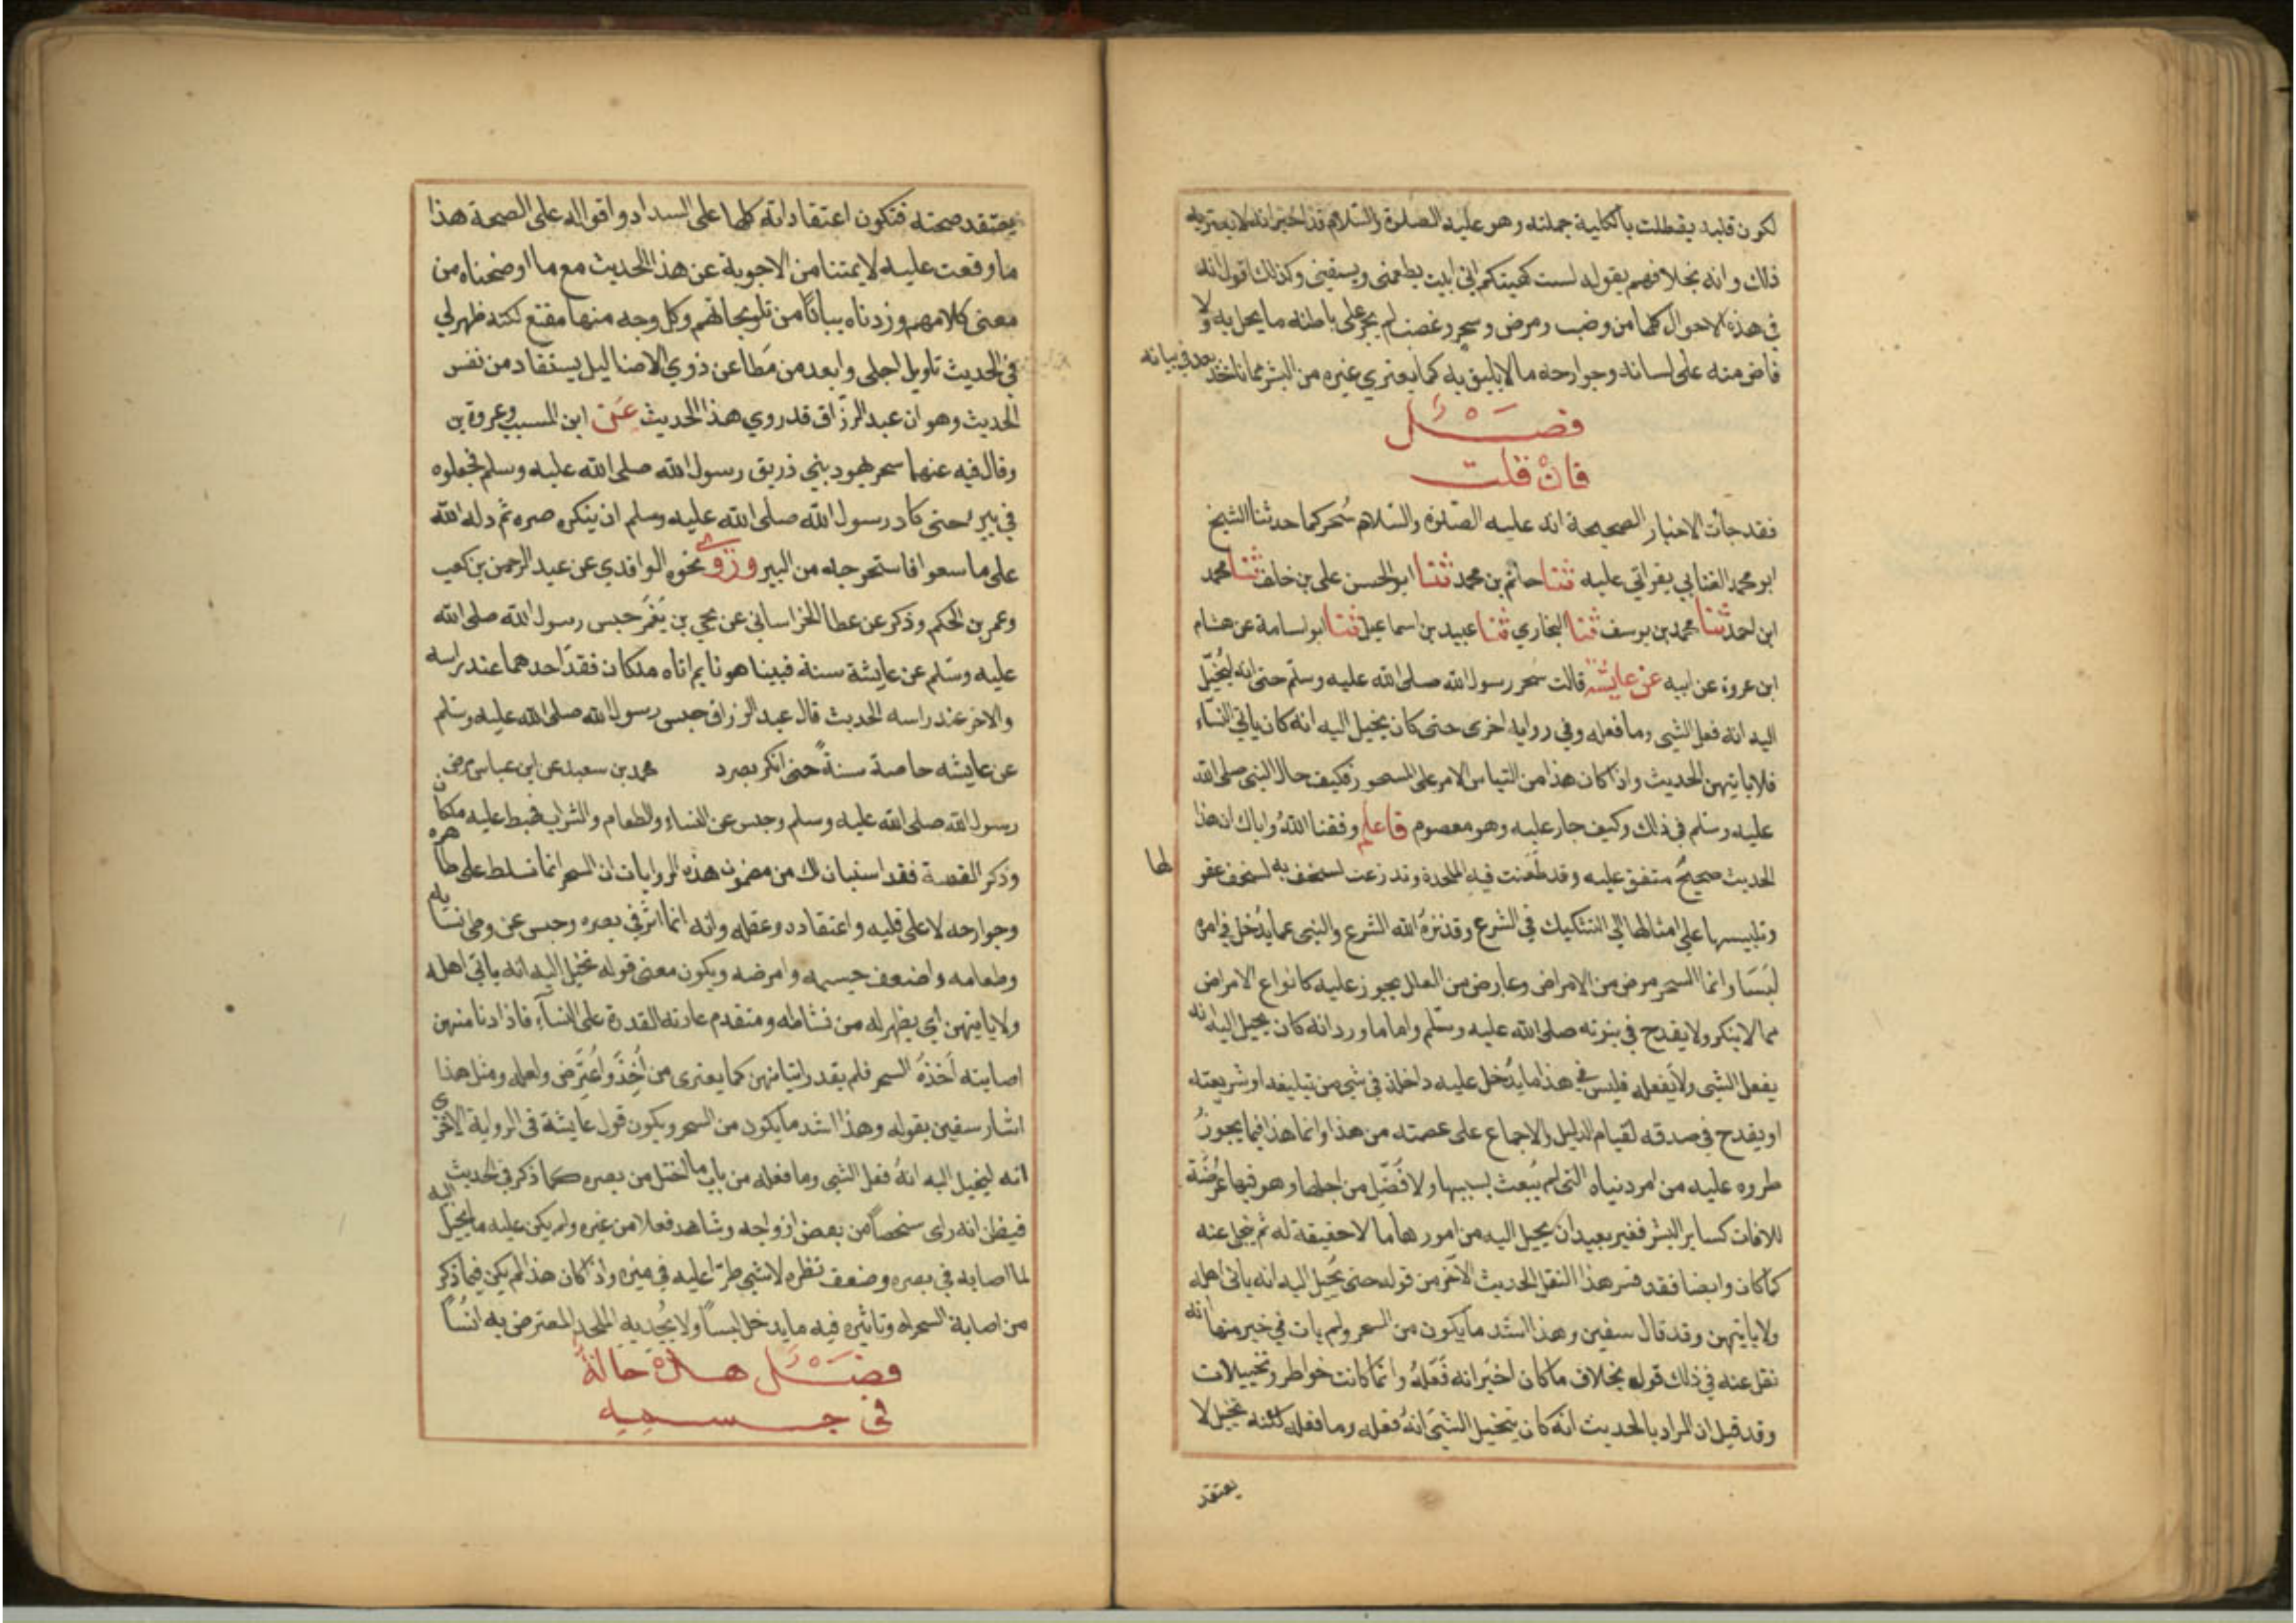 لكون قلبه يقطلت بالكلية جملته وهو عليه الصلوة والسلام قد اخبر انه لا يعتريه
ذلك وانه بخلافهم بقوله لست كهيئتكم اني ابيت يطعمني ويسقيني وكذلك اقول انه
في هذه الاحوال كلها من وصب ومرض وسحر وغضب لم يجر على باطنه ما يحل به ولا
فاض منه على لسانه وجوارحه ما لا يليق به كما يعتري غيره من البشر مما ناخذ بعد في بيانه
فصل
فان قلت
فقد جأت الاخبار الصحيحة انه عليه الصلوة والسلام سُحر كما حدثنا الشيخ
ابو محمد العتابي بقراتي عليه ثنا حاتم بن محمد ثنا ابو الحسن علي بن خلف ثنا محمد
ابن احمد ثنا محمد بن يوسف ثنا البخاري ثنا عبيد بن اسماعيل ثنا ابو اسامة عن هشام
ابن عروة عن ابيه عن عايشة قالت سحر رسول الله صلى الله عليه وسلم حتى انه ليُخيّل
اليه انه فعل الشي وما فعله وفي رواية اخرى حتى كان يخيل اليه انه كان ياتي النسّاء
فلا ياتيهن الحديث واذا كان هذا من التباس الامر على المسحور فكيف حال النبي صلى الله
عليه وسلم في ذلك وكيف جاز عليه وهو معصوم فاعلم وفقنا الله واياك ان هذا
الحديث صحيح متفق عليه وقد طعنت فيه الملحدة وتدزعت لسخف به لسخف عقولها
وتلبيسها على امثالها الى التشكيك في الشرع وقد نزه الله الشرع والنبي عما يُدخل في امره
لَبسَا وانما السحر مرض من الامراض وعارض من العلل يجوز عليه كانواع الامراض
مما لا ينكر ولا يقدح في نبوته صلى الله عليه وسلم واما ما ورد انه كان يخيل اليه انه
يفعل الشي ولا يفعله فليس في هذا ما يُدخل عليه داخلة في شي من تبليغه او شريعته
او يقدح في صدقه لقيام الدليل والاجماع على عصمته من هذا وانما هذا فيما يجوزُ
طروه عليه من امر دنياه التي لم يُبعث لسببها ولا فُضّل من اجلها وهو فيها عُرضة
للافات كساير البشر فغير بعيد ان يخيل اليه من امورها ما لا حقيقة له ثم ينجلي عنه
كما كان وايضا فقد فسر هذا النقل الحديث الآخر من قوله حتى يُخيل اليه انه ياتي اهله
ولا ياتيهن وقد قال سفين وهذا اشد ما يكون من السحر ولم يات في خبر منها انه
نقل عنه في ذلك قول بخلاف ما كان اخبَر انه فَعَلهُ وانما كانت خواطر وتخييلات
وقد قيل ان المراد بالحديث انه كان يتخيل الشئ انه فعله وما فعله لكنه تخيل لا
يعتقد
يعتقد صحته فتكون اعتقاداته كلها على السداد واقواله على الصحة هذا
ما وقعت عليه لايمتنا من الاجوبة عن هذا الحديث مع ما اوضحناه من
معنى كلامهم وزدناه بيانًا من تلويحاتهم وكل وجه منها مقنع لكنه ظهر لي
في الحديث تاويل اجلى وابعد من مَطاعن ذوي الاضاليل يستفاد من نفس
الحديث وهو ان عبد الرزاق قد روي هذا الحديث عَن ابن المسيب وعروة بن
وقال فيه عنهما سحر يهود بني زريق رسول الله صلى الله عليه وسلم فجعلوه
في بير حتى كاد رسول الله صلى الله عليه وسلم ان ينكر بصره ثم دله الله
على ما سعوا فاستخرجه من البير وروي نحوه الواقدي عن عبد الرحمن بن كعب
وعمر بن الحكم وذكر عن عطا الخراساني عن يحيى بن يَعْمَر حبس رسول الله صلى الله
عليه وسلم عن عايشة سنة فبينا هو نايم اتاه ملكان فقعد احدهما عند راسه
والاخر عند راسه الحديث قال عبد الرزاق حبس رسول الله صلى الله عليه وسلم
عن عايشه خاصة سنةً حتى انكر بصره محمد بن سعد عن ابن عباس مرض
رسول الله صلى الله عليه وسلم وحبس عن النساء والطعام والشراب فهبط عليه ملكان
وذكر القصة فقد استبان لك من مضمون هذه الروايات ان السحر انما تسلط على ظاهره
وجوارحه لا على قلبه واعتقاده وعقله وانه انما اثر في بصره وحبس عن وطي نسايه
وطعامه واضعف جسمه وامرضه ويكون معنى قوله يخيل اليه انه ياتي اهله
ولا ياتيهن اي يظهر له من نشاطه ومتقدم عادته القدرة على النساء فاذا دنا منهن
اصابته أخذة السحر فلم يقدر اتيانهن كما يعترى من اُخِذَ واُعتُرض ولعله ومثل هذا
اشار سفين بقوله وهذا اشد ما يكون من السحر ويكون قول عايشة في الرواية الاخرى
انه ليخيل اليه انهُ فعل الشي وما فعله من باب ما اختل من بصره كما ذكر في الحديث
فيظن انه راى شخصاً من بعض ازواجه وشاهد فعلا من غيره ولم يكن عليه ما يخيل اليه
لما اصابه في بصره وضعف نظره لا شي طرا عليه في ميزه واذا كان هذا لم يكن فيما ذكر
من اصابة السحر له وتاثيره فيه ما يدخل لبساً ولا يُجديه الملحد المعترض به انسًا
فصل هذه حاله
في جسمه